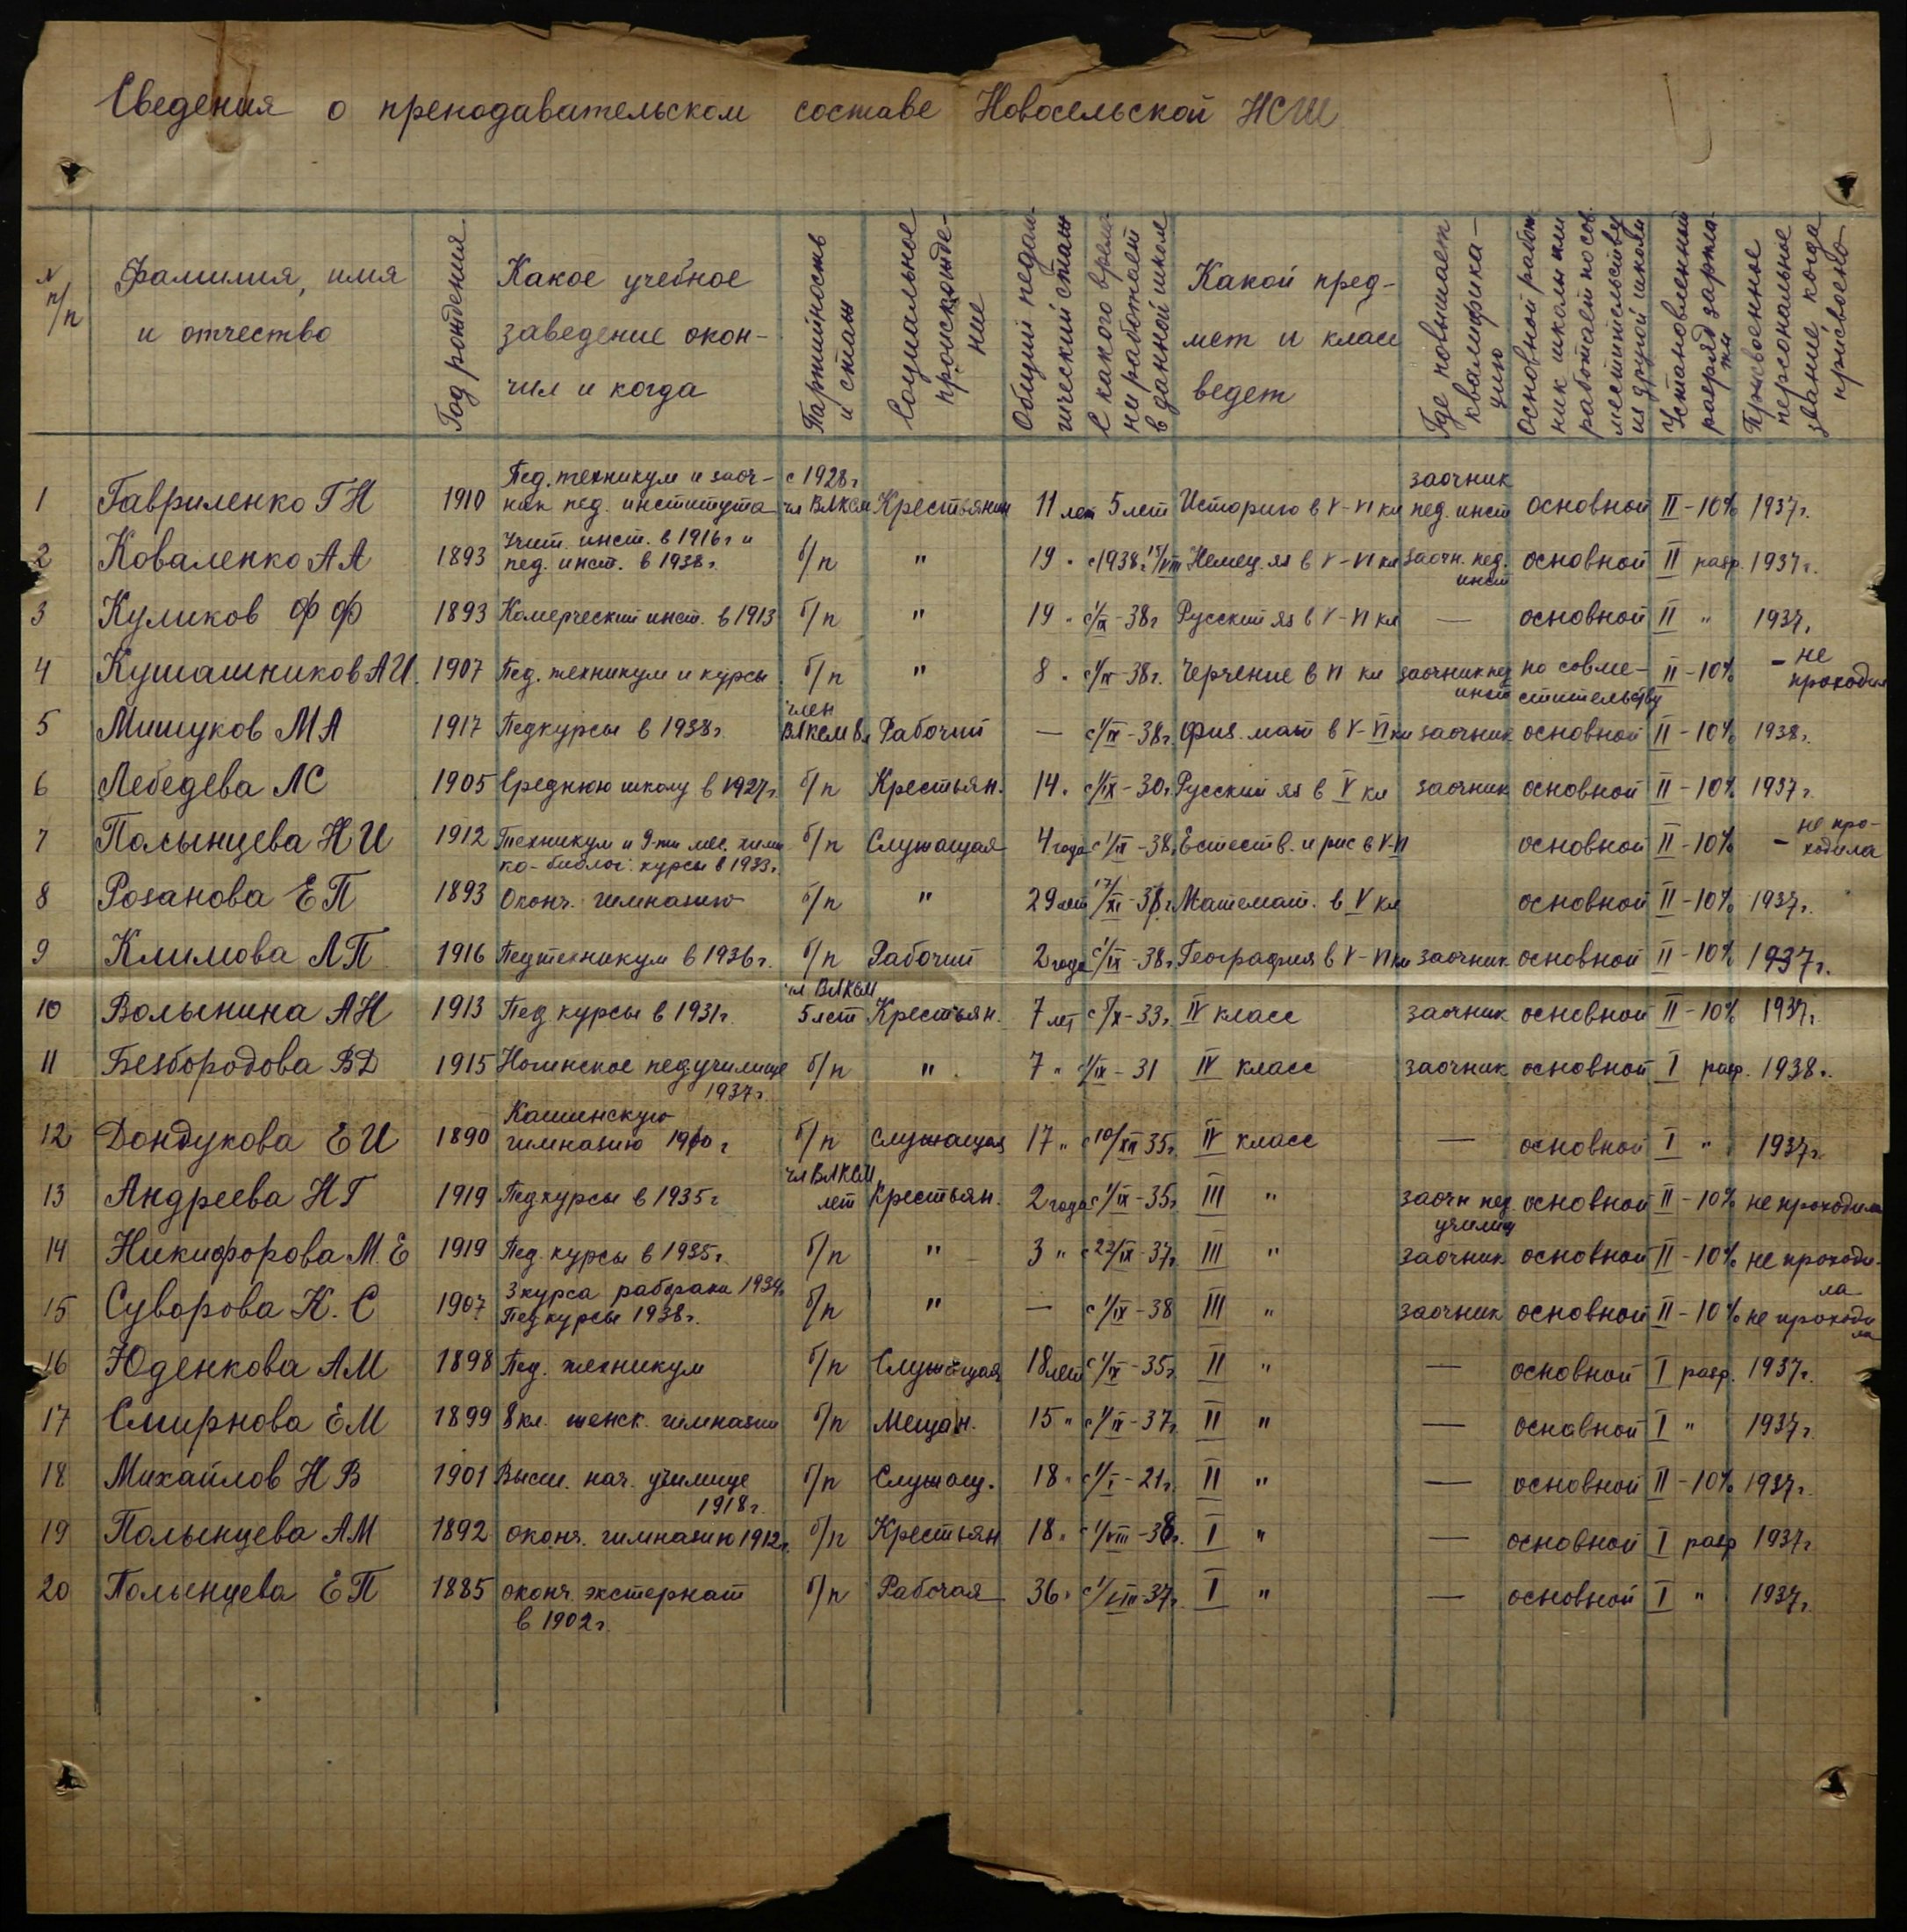 Сведения о преподавательском составе Новосельской НСШ
N п/п
Фамилия, имя и отчество
Год рождения
Какое учебное заведение окончил и когда
Партийность и стаж
Социальное происхождение
Общий педагогический стаж
С какого времени работает в данной школе
Какой предмет и класс ведет
Где повышает квалификацию
Основной работник школы или работает по совместительству из другой школы
Установленный разряд зарплаты
Присвоенное персональное звание когда присвоено
1 Гавриленко Г Н 1910 Пед. техникум и заочник пед. института с 1928г чл ВЛКСМ Крестьянин 11 лет 5 лет Историю в V-VI кл заочник пед. инст основной II-10% 1937г.
2 Коваленко А А 1893 Учит. инст. в 1916г и пед. инст. в 1938г. б/п " 19 " с 1938г. 15/VIII Немец. яз в V-VI кл заочн. пед. инст основной II разр. 1937г.
3 Куликов Ф Ф 1893 Комерческий инст. в 1913 б/п " 19 " с 1/IX-38г Русский яз в V-VI кл — основной II " 1937г.
4 Кушашников А И. 1907 Пед. техникум и курсы б/п " 8 " с 1/IX-38г. Черчение в VI кл заочник пед инст по совместительству II-10% - не проходил
5 Мишуков М А 1917 Педкурсы в 1938г. член ВЛКСМ 8л Рабочий — с 1/IX-38г. физ. мат в V-VI кл заочник основной II-10% 1938г.
6 Лебедева Л С 1905 Среднюю школу в 1927г. б/п Крестьян. 14 " с 1/IX-30г. Русский яз в V кл заочник основной II-10% 1937г.
7 Полынцева Н И 1912 Техникум и 9-ти мес. химико-биолог. курсы в 1933г. б/п Служащая 4 года с 1/IX-38г. Естеств. и рис в V-VI основной II-10% - не проходила
8 Розанова Е П 1893 Оконч. гимназию б/п " 29 лет 17/XI-38г. Математ. в V кл основной II-10% 1937г.
9 Климова Л П 1916 Педтехникум в 1936г. б/п Рабочий 2 года с 1/IX-38г. География в V-VI кл заочник основной II-10% 1937г.
10 Волынина А Н 1913 Пед. курсы в 1931г. чл ВЛКСМ 5 лет Крестьян. 7 лет с 5/X-33г. IV класс заочник основной II-10% 1937г.
11 Безбородова В Д 1915 Ногинское педучилище 1937г. б/п " 7 " 1/IX-31 IV класс заочник основной I разр. 1938г.
12 Дондукова Е И 1890 Кашинскую гимназию 1910г б/п служащая 17 " с 10/XII 35г. IV класс — основной I " 1937г.
13 Андреева Н Г 1919 Педкурсы в 1935г чл ВЛКСМ лет Крестьян. 2 года с 1/IX-35г. III " заочн пед. училищ основной II-10% не проходила
14 Никифорова М. Е 1919 Пед. курсы в 1935г. б/п " 3 " с 22/IX-37г. III " заочник основной II-10% не проходила
15 Суворова К. С 1907 3 курса рабфака 1934г. Педкурсы 1938г. б/п " — с 1/IX-38 III " заочник основной II-10% не проходила
16 Юденкова А М 1898 Пед. техникум б/п Служащая 18 лет с 1/IX-35г. II " — основной I разр. 1937г.
17 Смирнова Е М 1899 8 кл. женск. гимназии б/п Мещан. 15 " с 1/IX-37г. II " — основной I " 1937г.
18 Михайлов Н В 1901 Высш. нач. училище 1918г. б/п Служащ. 18 " с 1/I-21г. II " — основной II-10% 1937г.
19 Полынцева А М 1892 оконч. гимназию 1912г. б/п Крестьян 18 " с 1/VIII-38г. I " — основной I разр 1937г
20 Полынцева Е П 1885 оконч. экстернат в 1902г. б/п Рабочая 36 " с 1/VIII-37г. I " — основной I " 1937г.